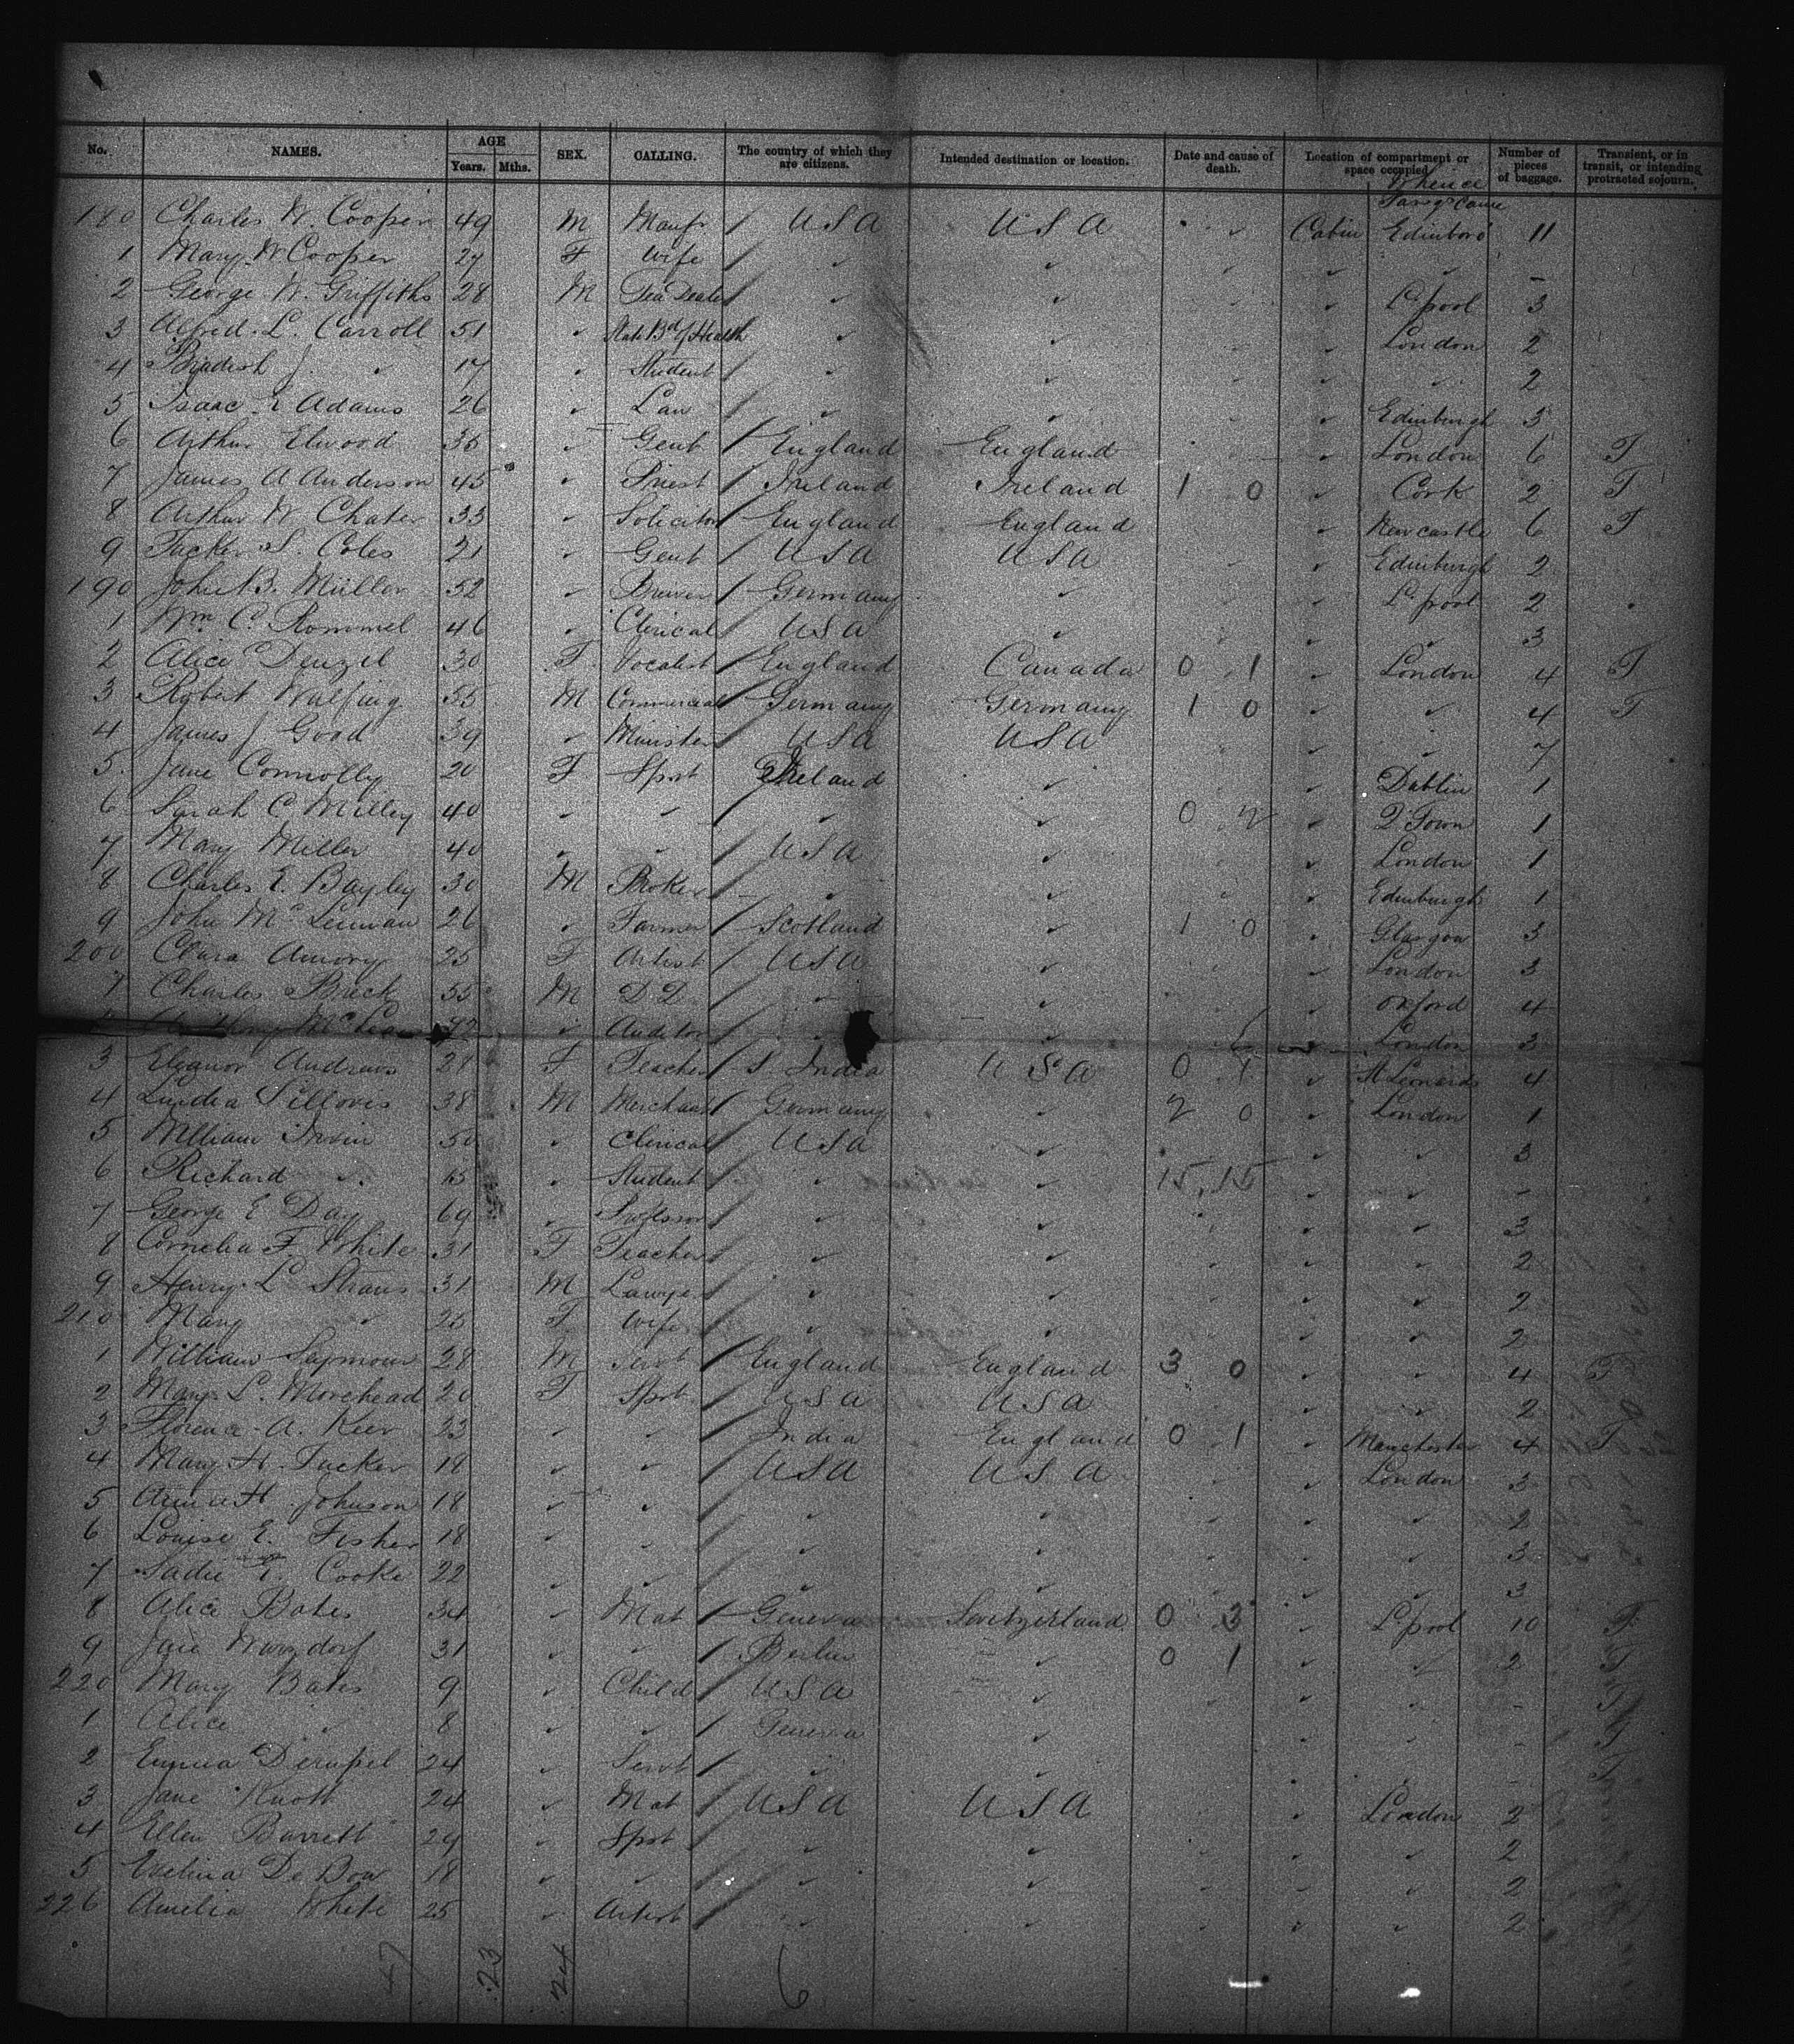 No. NAMES. AGE Years. Mths. SEX. CALLING. The country of which they are citizens. Intended destination or location. Date and cause of death. Location of compartment or space occupied Number of pieces of baggage. Transient, or in transit, or intending protracted sojourn.
Whence Pasgr came
180 Charles W. Cooper 49 M Manfr / USA USA Cabin Edinboro 11
1 Mary W Cooper 27 F Wife / ✓ ✓ ✓ ✓ -
2 George W. Griffiths 28 M Tea Dealer ✓ ✓ ✓ L'pool 3
3 Alfred L. Carroll 51 ✓ State Bd of Health ✓ ✓ ✓ London 2
4 Bradish J. ✓ 17 ✓ Student / ✓ ✓ ✓ ✓ 2
5 Isaac Adams 26 ✓ Law / ✓ ✓ ✓ Edinburgh 5
6 Arthur Elwood 36 ✓ Gent / England England ✓ London 6 T
7 James A Anderson 45 ✓ Priest / Ireland Ireland 1 0 ✓ Cork 2 T
8 Arthur W Chater 33 ✓ Solicitor / England England ✓ Newcastle 6 T
9 Tucker S. Coles 21 ✓ Gent / USA USA ✓ Edinburgh 2
190 John B. Müller 52 ✓ Brewer / Germany ✓ ✓ L'pool 2
1 Wm C. Rommel 46 ✓ Clerical / USA ✓ ✓ ✓ 3
2 Alice Denzil 30 F Vocalist / England Canada 0 1 ✓ London 4 T
3 Robert Wulfing 55 M Commercial / Germany Germany 1 0 ✓ ✓ 4 T
4 James J Good 39 ✓ Minister / USA USA ✓ ✓ 7
5 Jane Connolly 20 F Spst / Ireland ✓ ✓ Dublin 1
6 Sarah C Milley 40 ✓ ✓ / ✓ ✓ 0 2 ✓ Q Town 1
7 Mary Miller 40 ✓ ✓ / USA ✓ ✓ London 1
8 Charles E. Bayley 30 M Broker / ✓ ✓ ✓ Edinburgh 1
9 John Mc Lennan 26 ✓ Farmer / Scotland ✓ 1 0 ✓ Glasgow 3
200 Clara Amory 25 F Artist / USA ✓ ✓ London 3
1 Charles Brick 55 M D D / ✓ ✓ ✓ Oxford 4
✓ Auditor / ✓ ✓ London 3
3 Eleanor Andrews 21 F Teacher / S. India USA 0 1 ✓ St Leonards 4
4 38 M Merchant / Germany ✓ 2 0 ✓ London 1
5 William Irvin 50 ✓ Clerical / USA ✓ ✓ ✓ 3
6 Richard ✓ 15 ✓ Student / ✓ ✓ 15 15 ✓ ✓ -
7 George E Day 69 ✓ Professor / ✓ ✓ ✓ ✓ 3
8 Cornelia F. White 31 F Teacher / ✓ ✓ ✓ ✓ 2
9 Henry L Straus 31 M Lawyer / ✓ ✓ ✓ ✓ 2
210 Mary ✓ 25 F Wife / ✓ ✓ ✓ ✓ 2
1 William Seymour 28 M Servt / England England 3 0 ✓ ✓ 4 T
2 Mary L. Morehead 20 F Spst / USA USA ✓ ✓ 2
3 Florence A. Keer 23 ✓ ✓ / India England 0 1 ✓ Manchester 4 T
4 Mary H. Tucker 18 ✓ ✓ / USA USA ✓ London 3
5 Anna H. Johnson 18 ✓ ✓ / ✓ ✓ ✓ ✓ 2
6 Louise E. Fisher 18 ✓ ✓ / ✓ ✓ ✓ ✓ 3
7 Sadie E. Cooke 22 ✓ ✓ / ✓ ✓ ✓ ✓ 3
8 Alice Bates 34 ✓ Mat / Geneva Switzerland 0 3 ✓ L'pool 10 T
9 31 ✓ ✓ / Berlin ✓ 0 1 ✓ ✓ 2 T
220 Mary Bates 9 ✓ Child / USA ✓ ✓ - T
1 Alice ✓ 8 ✓ ✓ / Geneva ✓ - T
2 Emma 24 ✓ Servt / ✓ ✓ - T
3 Jane Knott 24 ✓ Mat / USA USA ✓ London 2
4 Ellen Barrett 29 ✓ Spst / ✓ ✓ ✓ ✓ 2
5 Evelina De Bow 18 ✓ ✓ / ✓ ✓ ✓ ✓ 2
226 Amelia White 25 ✓ Artist / ✓ ✓ ✓ ✓ 2
47 23 24 6